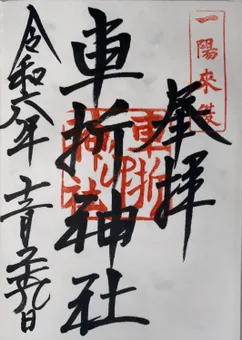 一陽来復
奉拝
車折神社
車折神社
令和六年十二月二十九日